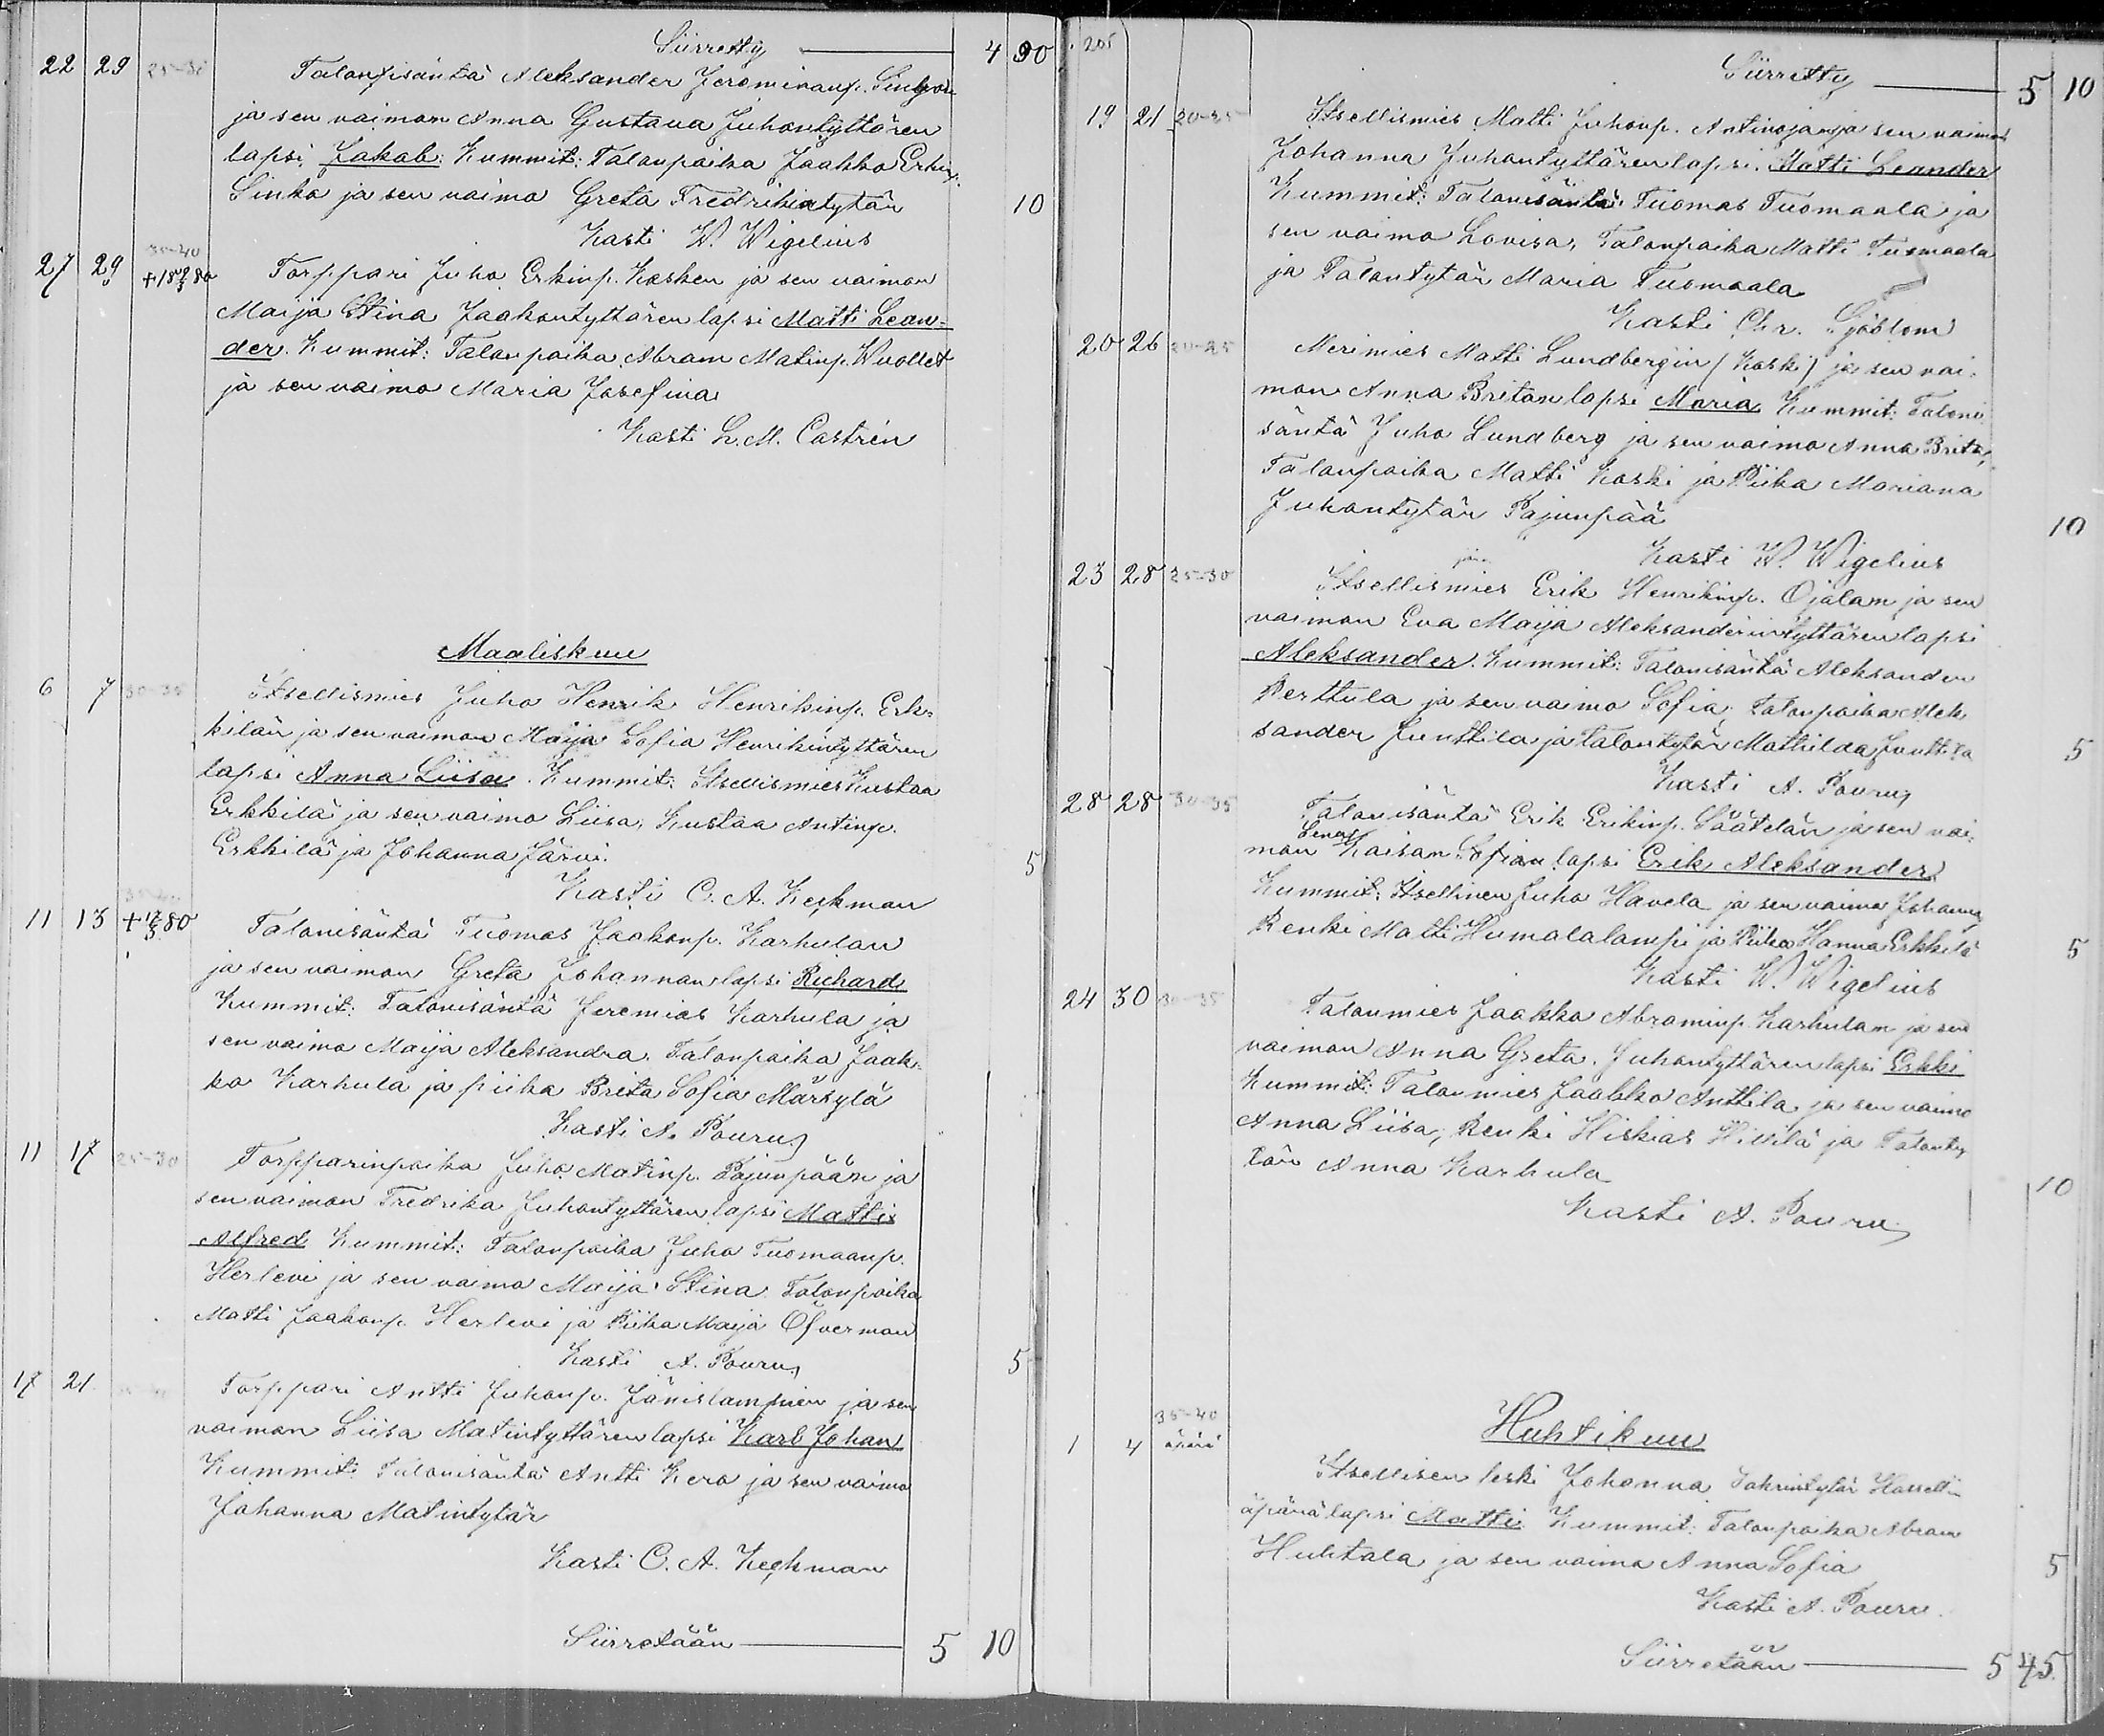 Siirretty 4 90
22 29 25-30 Talonisäntä Aleksander Jereminanp.
ja sen vaimon Anna Gustava Juhontyttären
lapsi Jakob. Kummit: Talonpoika Jaakko Erkinp.
Sinko ja sen vaimo Greta Fredrikintytär 10
Kasti W. Wigelius
35-40
27 29 Torppari Juho Erkinp. Kosken ja sen vaimon
Maija Stina Jaakontyttären lapsi Matti Lean-
der. Kummit: Talonpoika Abram Matinp. Wuollet
ja sen vaimo Maria Josefina
Kasti L. M. Castrén
Maaliskuu
6 7 30-35 Itsellismies Juho Henrik Henrikinp. Erk-
kilän ja sen vaimon Maija Sofia Henrikintyttären
lapsi Anna Liisa. Kummit: Itsellismies Kustaa
Erkkilä ja sen vaimo Liisa, Kustaa Antinp.
Erkkilä ja Johanna Järvi. 5
Kasti C. A. Keckman
11 13 Talonisäntä Tuomas Jaakonp. Karhulan
ja sen vaimon Greta Johannan lapsi Richard
Kummit: Talonisäntä Jeremias Karhula ja
sen vaimo Maija Aleksandra. Talonpoika Jaak-
ko Karhula ja piika Brita Sofia Märsylä
Kasti A. Pouru
11 17 25-30 Torpparinpoika Juho Matinp. Pajunpään ja
sen vaimon Fredrika Juhontyttären lapsi Matti
Alfred Kummit: Talonpoika Juho Tuomaanp.
Herlevi ja sen vaimo Maija Stina Talonpoika
Matti Jaakonp. Herlevi ja Piika Maija Öfverman
Kasti A. Pouru 5
17 21 Torppari Antti Juhonp. Jänislammin ja sen
vaimon Liisa Matintyttären lapsi Karl Johan
Kummit: Talonisäntä Antti Kero ja sen vaimo
Johanna Matintytär
Kasti C. A. Keckman
Siirretään 5 10
205
Siirretty 5 10
19 21 20-25 Itsellismies Matti Juhonp. Antinojan ja sen vaimon
Johanna Juhontyttären lapsi. Matti Leander
Kummit: Talonisäntä Tuomas Tuomaala ja
sen vaimo Lovisa, Talonpoika Matti Tuomaala
ja Talontytär Maria Tuomaala
Kasti Chr. Sjöblom
20 26 20-25 Merimies Matti Lundbergin (Koski) ja sen vai-
mon Anna Britan lapsi Maria Kummit: Taloni-
säntä Juho Lundberg ja sen vaimo Anna Brita,
Talonpoika Matti Koski ja Piika Mariana
Juhontytär Pajunpää 10
Kasti W. Wigelius
23 28 25-30 Itsellismies Erik Henrikinp. Ojalan ja sen
vaimon Eva Maija Aleksanderintyttären lapsi
Aleksander. Kummit: Talonisäntä Aleksander
Perttula ja sen vaimo Sofia, Talonpoika Alek-
sander Junttila ja talontytär Mathilda Junttila 5
Kasti A. Pouru
28 28 30-35 Talonisäntä Erik Erikinp. Säätelän ja sen vai-
Lenan
mon Kaisan Sofian lapsi Erik Aleksander
Kummit: Itsellinen Juho Havela ja sen vaimo Johanna
Renki Matti Humalalampi ja Piika Hanna Erkkilä 5
Kasti W. Wigelius
24 30 30-35 Talonmies Jaakko Abraminp. Karhulan ja sen
vaimon Anna Greta Juhontyttären lapsi Erkki
Kummit: Talonmies Jaakko Anttila ja sen vaimo
Anna Liisa, Renki Hiskias Hillilä ja Talonty-
tär Anna Karhula 10
Kasti A. Pouru
Huhtikuu
35-40
1 4 Itsellisen leski Johanna
äpärä lapsi Matti Kummit: Talonpoika Abram
Huhtala ja sen vaimo Anna Sofia 5
Kasti A. Pouru.
Siirretään 5 45